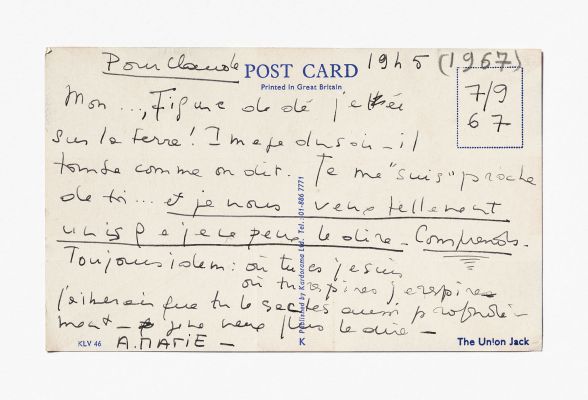 Pour Claude
POST CARD
Printed in Great Britain
19h5 (1967)
7/9
67
Mon ..., Figure de dé jetée
sur la terre! Image du soir - il
tombe comme on dit. Je me "suis" proche
de toi ... et je nous veux tellement
unis que je ne peux le dire - Comprends -
Toujours idem: où tu es je suis
où tu respires je respire
j'aimerais que tu le saches aussi profondé-
ment - je ne veux plus le dire -
A.MARIE -
Published by Kardorama Ltd. Tel.: 01-886 7771
KLV 46
K
The Union Jack